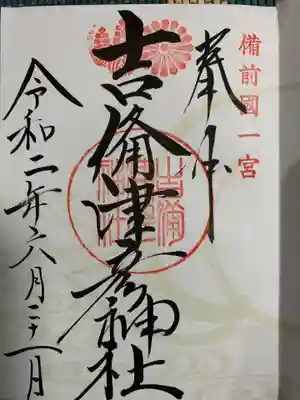 備前國一宮
奉拝
吉備津彦神社
令和二年六月二十一日